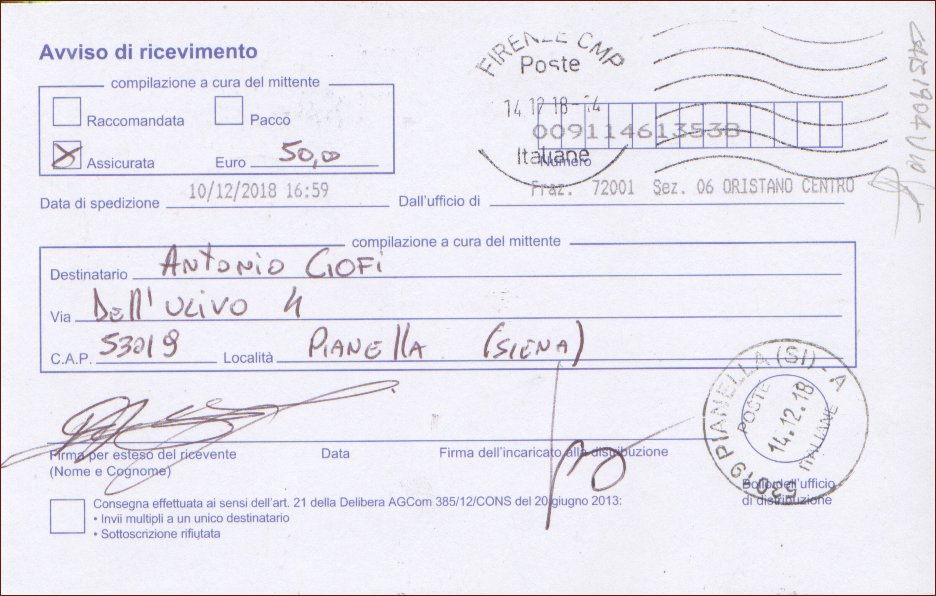 Avviso di ricevimento
compilazione a cura del mittente
Raccomandata Pacco
Assicurata Euro 50,00
FIRENZE CMP
Poste
14.12.18-
009114613538
Italiane
Numero
Fraz. 72001 Sez. 06 ORISTANO CENTRO
Data di spedizione 10/12/2018 16:59 Dall'ufficio di
compilazione a cura del mittente
Destinatario ANTONIO CIOFI
Via DELL'ULIVO 4
C.A.P. 53019 Località PIANELLA (SIENA)
Firma per esteso del ricevente Data Firma dell'incaricato alla distribuzione
(Nome e Cognome)
53019 PIANELLA (SI) - A
POSTE
14.12.18
ITALIANE
Bollo dell'ufficio
di distribuzione
Consegna effettuata ai sensi dell'art. 21 della Delibera AGCom 385/12/CONS del 20 giugno 2013:
• Invii multipli a un unico destinatario
• Sottoscrizione rifiutata